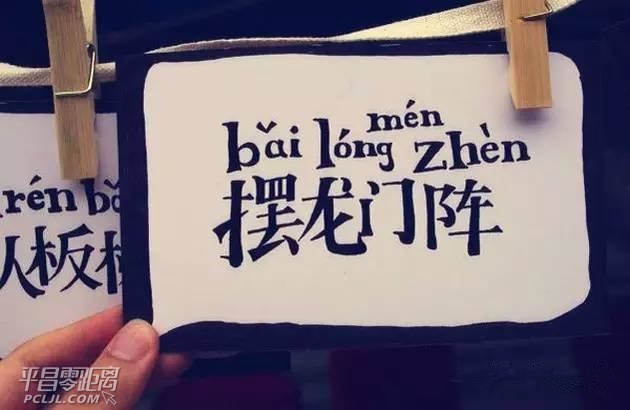 bǎi lóng mén zhèn
摆龙门阵
rén bǎ
人板桥
平昌零距离
PCLJL.COM